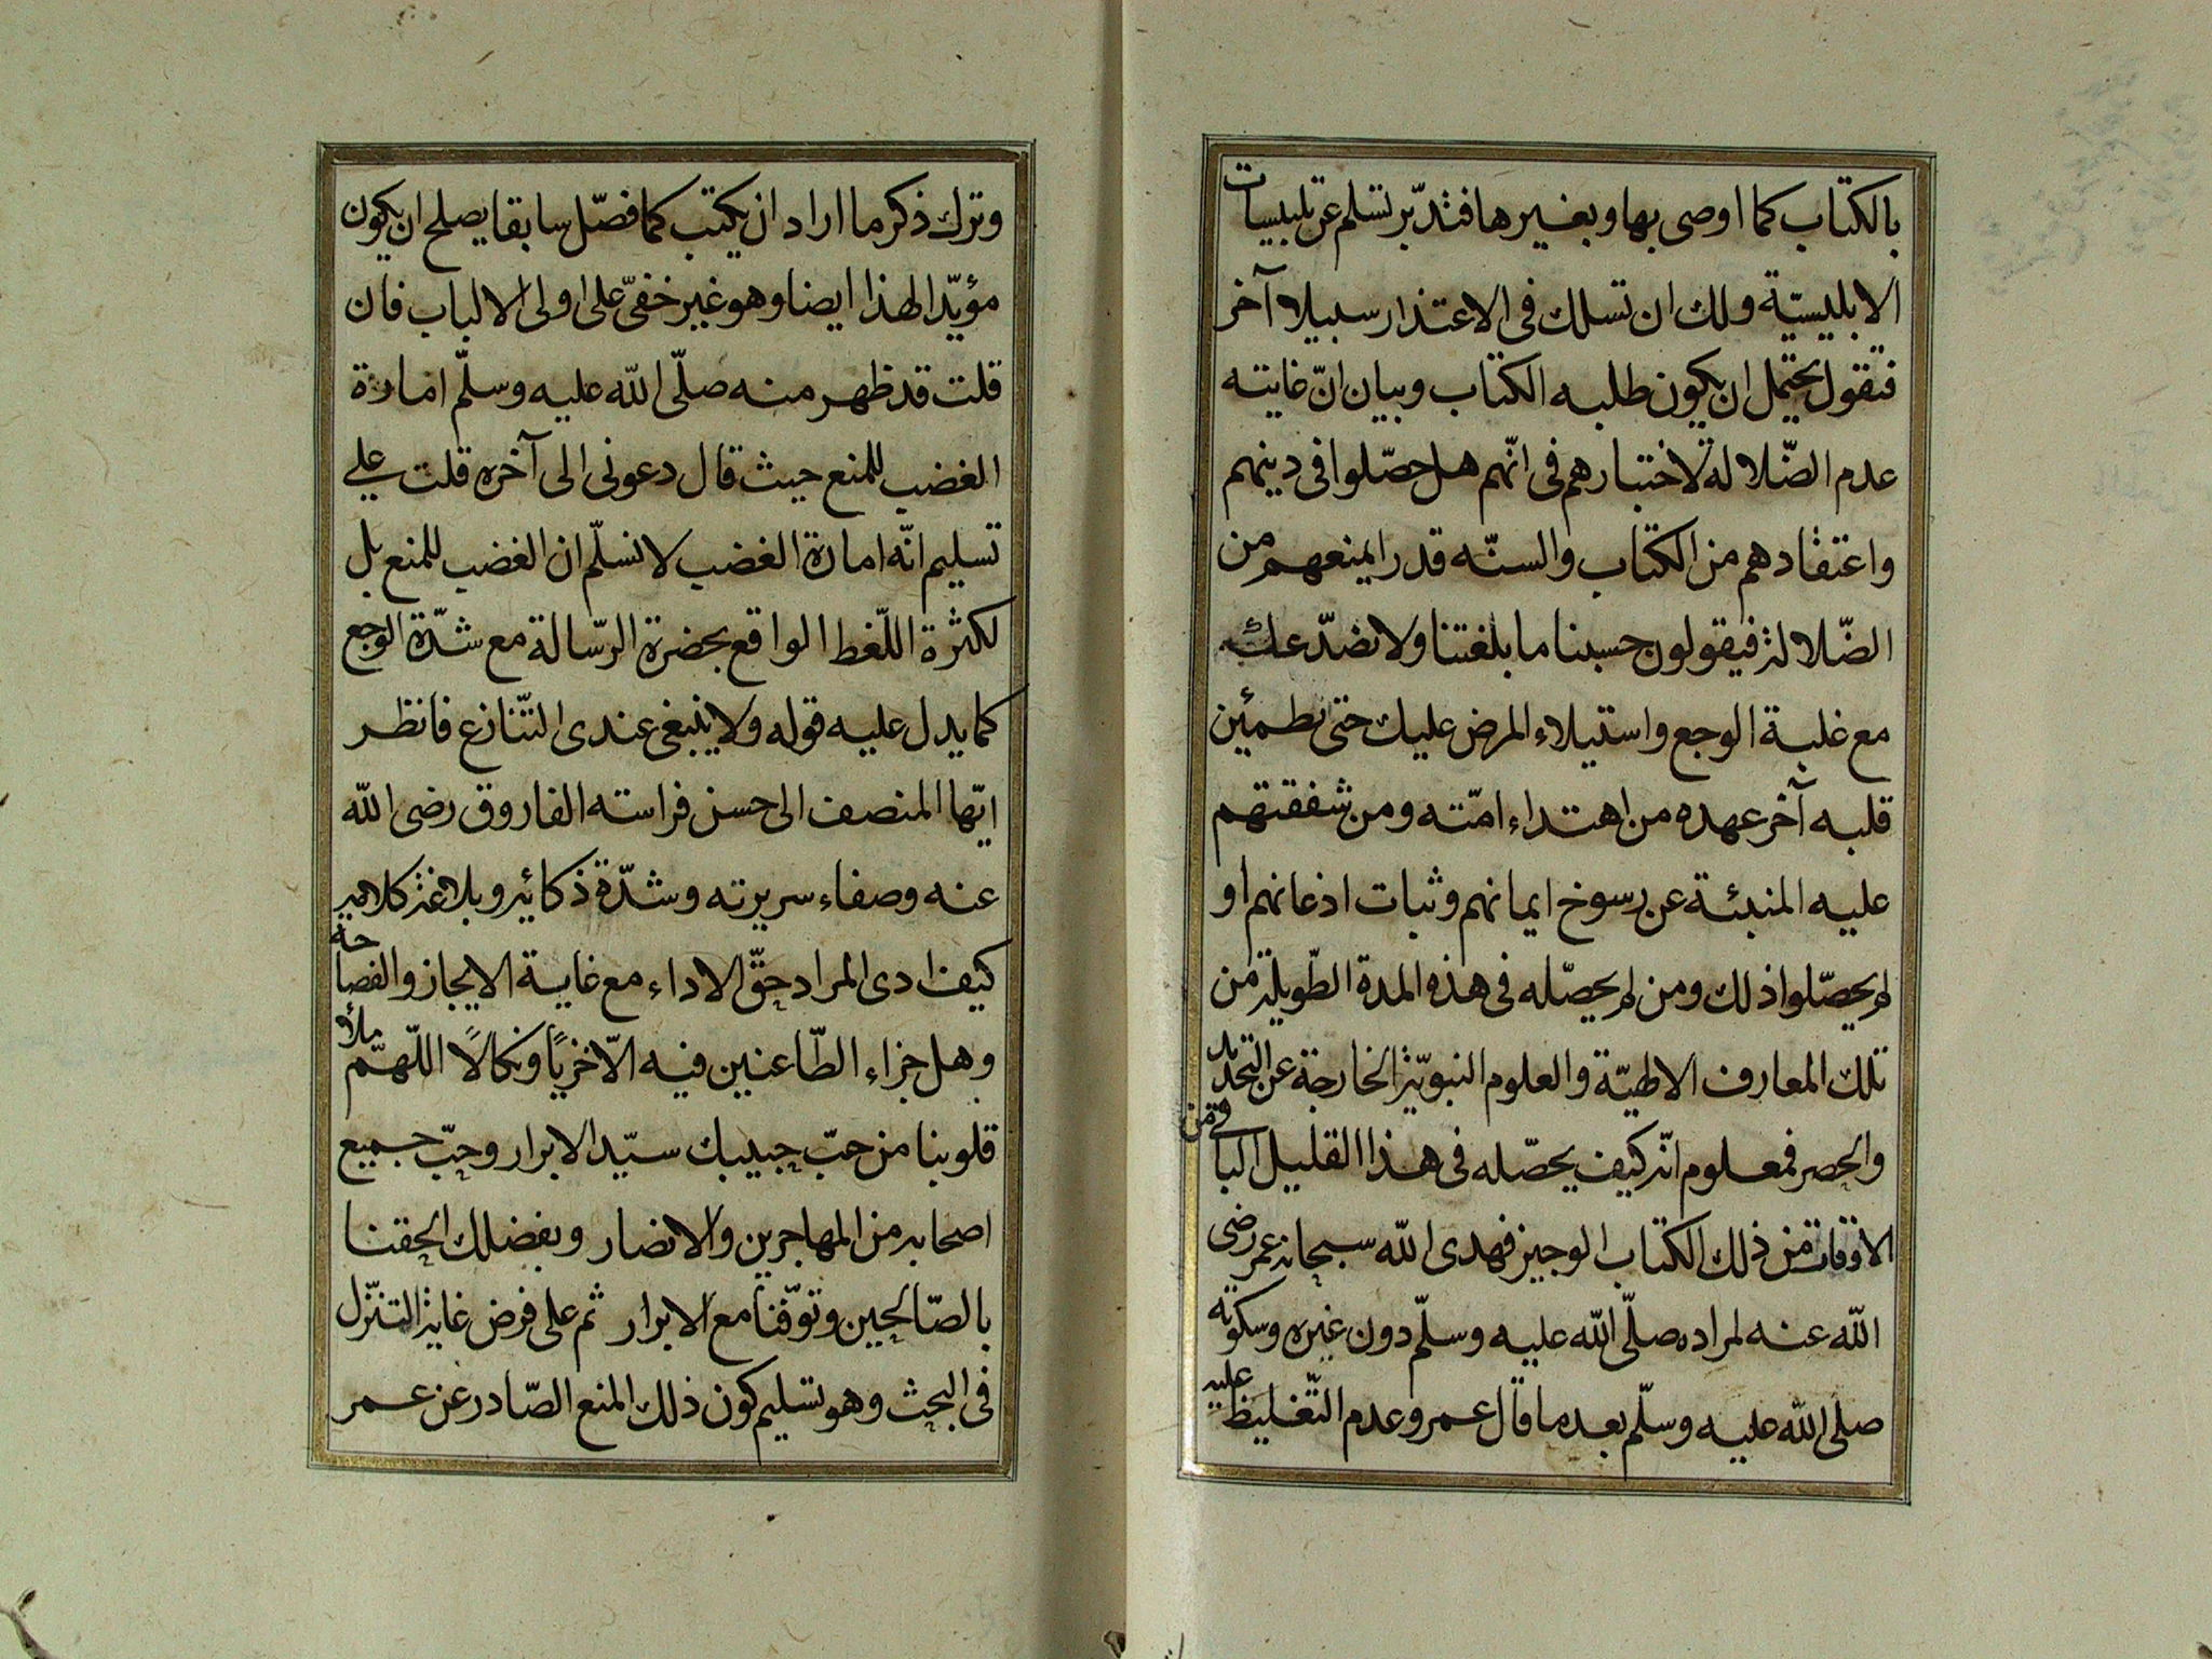 بالكتاب كما اوصى بها وبغيرها فتدبّر تسلم عن تلبيسات
الابليسيّة ولك ان تسلك فى الاعتذار سبيلا آخر
فتقول يحتمل ان يكون طلبه الكتاب وبيان انّ غايته
عدم الضّلالة لاختبارهم فى انّهم هل حصّلوا فى دينهم
واعتقادهم من الكتاب والسنّه قدرا يمنعهم من
الضّلالة فيقولون حسبنا ما بلغتنا ولا نصدّعك
مع غلبة الوجع واستيلاء المرض عليك حتى يطمئن
قلبه آخر عهده من اهتداء امّته ومن شفقتهم
عليه المنبئة عن رسوخ ايمانهم وثبات اذعانهم او
لم يحصّلوا ذلك ومن لم يحصّله فى هذه المدة الطّويلة من
تلك المعارف الالهيّة والعلوم النبويّة الخارجة عن التحديد
والحصر فمعلوم انّه كيف يحصّله فى هذا القليل الباقى من
الاوقات من ذلك الكتاب الوجيز فهدى الله سبحانه عمر رضى
الله عنه لمراده صلّى الله عليه وسلّم دون غيره وسكوته
صلى الله عليه وسلّم بعد ما قال عمر وعدم التّغليظ عليه
وترك ذكر ما اراد ان يكتب كما فصّل سابقا يصلح ان يكون
مؤيّدا لهذا ايضا وهو غير خفىّ على اولى الالباب فان
قلت قد ظهر منه صلّى الله عليه وسلّم امارة
الغضب للمنع حيث قال دعونى الى آخره قلت على
تسليم انّه امارة الغضب لا نسلّم ان الغضب للمنع بل
لكثرة اللّغط الواقع بحضرة الرّسالة مع شدّة الوجع
كما يدل عليه قوله ولا ينبغى عندى التّنازع فانظر
ايّها المنصف الى حسن فراسته الفاروق رضى الله
عنه وصفاء سريرته وشدّة ذكائه وبلاغة كلامه
كيف ادى المراد حقّ الاداء مع غاية الايجاز والفصاحة
وهل جزاء الطّاعنين فيه الّا خزيًا ونكالًا اللّهمّ املأ
قلوبنا من حبّ حبيبك سيّد الابرار وحبّ جميع
اصحابه من المهاجرين والانصار وبفضلك الحقنا
بالصّالحين وتوفّنا مع الابرار ثم على فرض غاية التنزّل
فى البحث وهو تسليم كون ذلك المنع الصّادر عن عمر